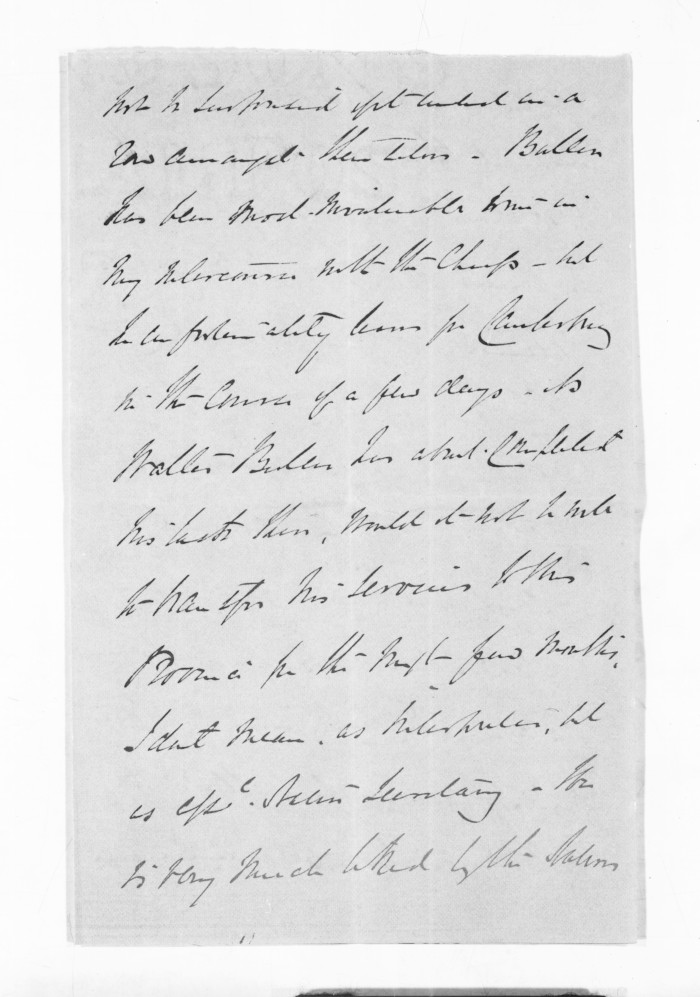 not be surprised if it ended in a
row amongst themselves - Buller
has been most invaluable to me in
my intercourse with the Chiefs - but
he unfortunately leaves for Canterbury
in the course of a few days - As
Walter Buller has about completed
his duties there, would it not be well
to transfer his services to this
Province for the next few months,
I don't mean, as Interpreter, but
as Native Secretary - He
is very much liked by the Natives